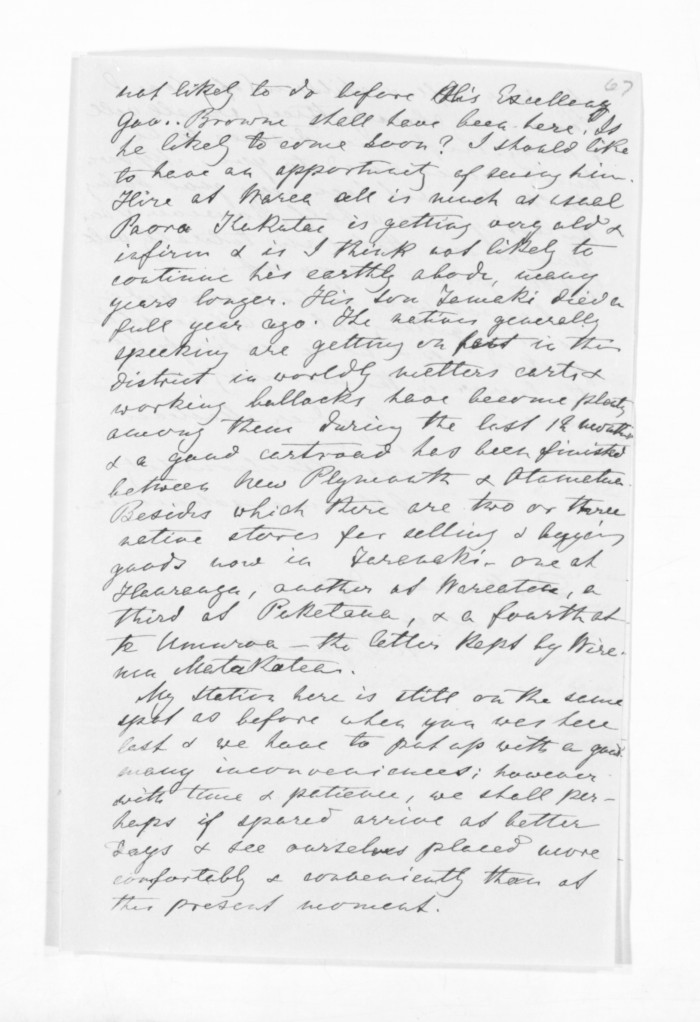 67
not likely to do before His Excellency
Gov.. Browne shall have been here. Is
he likely to come soon? I should like
to have an opportunity of seeing him.
Hire at Warea all is much as usual
Paora Kukutai is getting very old &
infirm & is I think not likely to
continue his earthly abode, many
years longer. His son Tamaki died a
full year ago. The natives generally
speeking are getting on fast in this
district in worldly matters carts &
working bullocks have become plenty
among them during the last 12 months
& a good cartroad has been finished
between New Plymouth & Otumatua.
Besides which there are two or three
native stores for selling & buying
goods now in Taranaki - one at
Hauranga, another at Wareatea, a
third at Puketaua, & a fourth at
te Umuroa – the latter kept by Wire-
mu Matakatea.
My station here is still on the same
spot as before when you was here
last & we have to put up with a good
many inconveniences; however
with time & patience, we shall per-
haps if spared arrive at better
days & see ourselves placed more
comfortably & conveniently than at
this present moment.